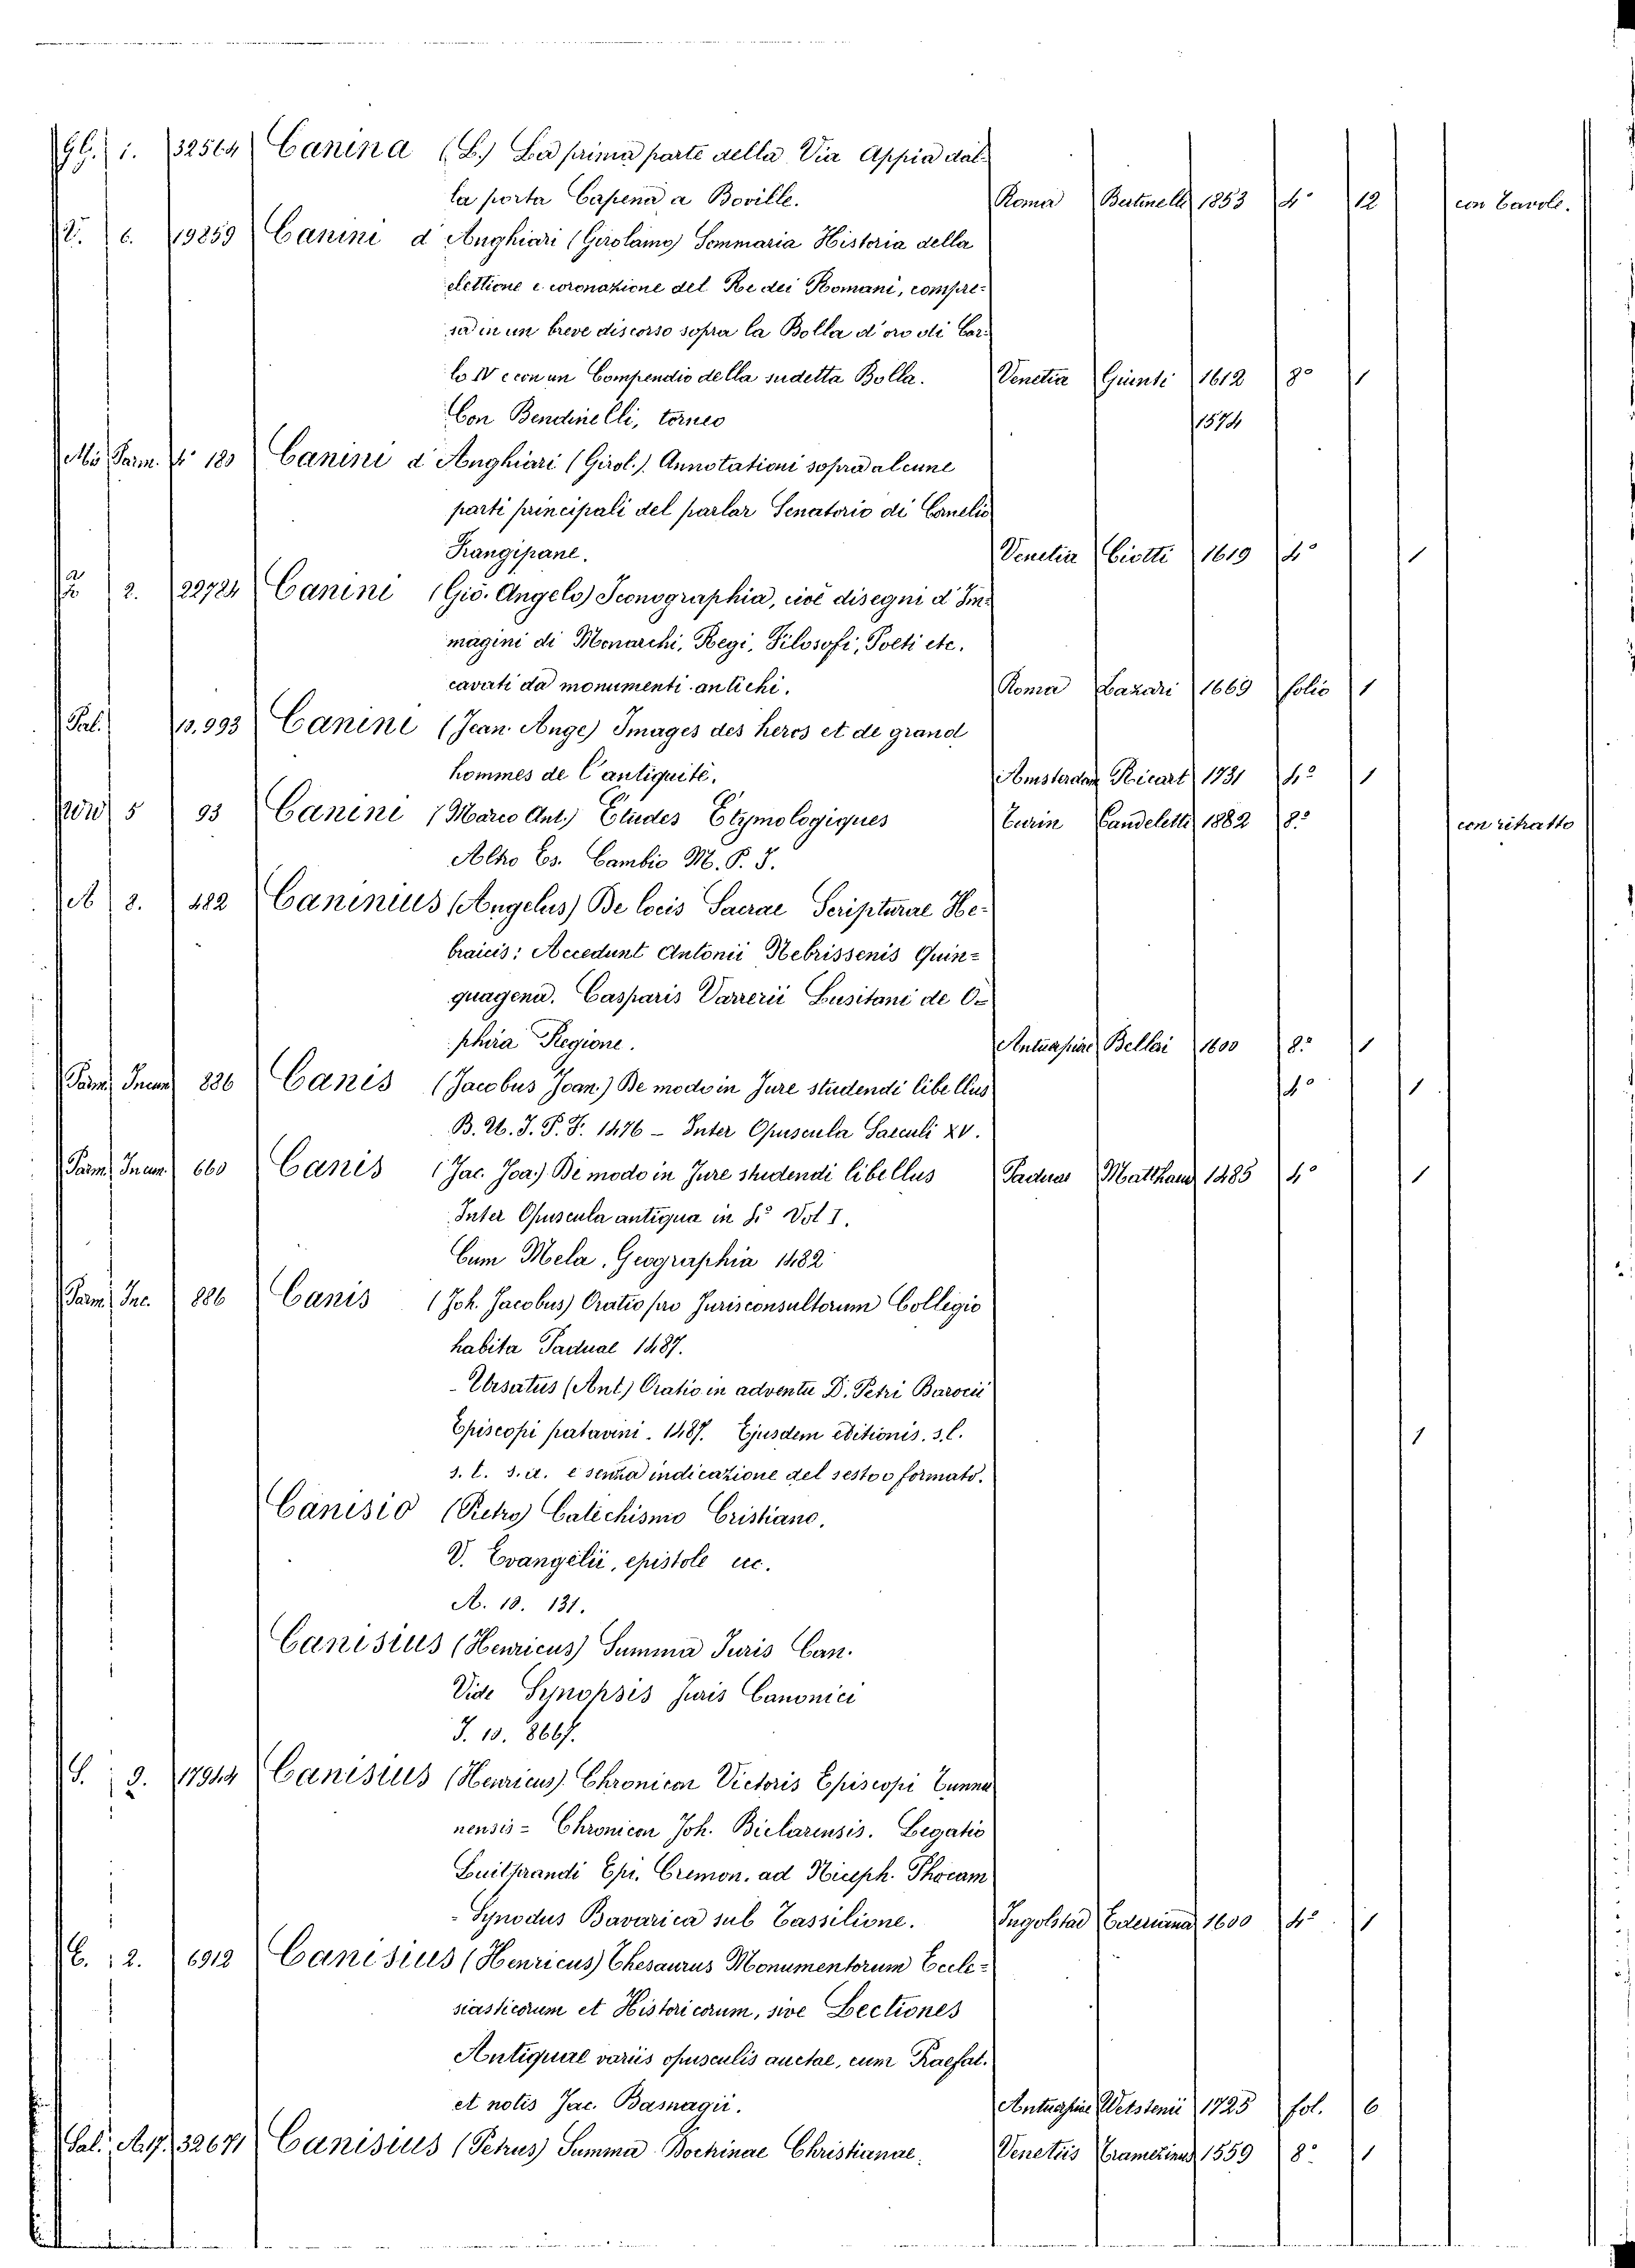 GG. 1. 32564 Canina (L.) La prima parte della Via Appia dal-
la porta Capena a Boville. Roma Bertinelli 1853 4° 12 con tavole.
V. 6. 19859 Canini d'Anghiari (Girolamo) Sommaria Historia della
elettione e coronazione del Re dei Romani, compre-
sa in un breve discorso sopra la Bolla d'oro di Car-
lo IV e con un Compendio della sudetta Bolla. Venetia Giunti 1612 8° 1
Con Bendinelli, torneo 1574
Mis. Parm. 4° 180 Canini d'Anghiari (Girol.) Annotationi sopra alcune
parti principali del parlar Senatorio di Cornelio
Frangipane. Venetia Ciotti 1619 4° 1
2. 22724 Canini (Gio. Angelo) Iconographia, cioè disegni d'Im-
magini di Monarchi, Regi, Filosofi, Poeti etc.
cavati da monumenti antichi. Roma Lazari 1669 folio 1
Pal. 13.993 Canini (Jean-Ange) Images des heros et de grand
hommes de l'antiquité. Amsterdam Picart 1731 4° 1
5 93 Canini (Marco Ant.) Etudes Etymologiques Turin Candeletti 1882 8° con ritratto
Altro Es. Cambio M. P. 5.
A 2. 482 Caninius (Angelus) De locis Sacrae Scripturae He-
braicis: Accedunt Antonii Nebrissenis Quin-
quagena. Casparis Varrerii Lusitani de O-
phira Regione. Antuerpiae Belleri 1600 8° 1
Parm. Incun. 886 Canis (Jacobus Joan.) De modo in Jure studendi libellus 4° 1
B. U. J. P. F. 1476 - Inter Opuscula Saeculi XV.
Parm. Incun. 660 Canis (Jac. Joa.) De modo in Jure studendi libellus Paduae Matthaeus 1485 4° 1
Inter Opuscula antiqua in 4° Vol I.
Cum Mela, Geographia 1482
Parm. Inc. 886 Canis (Joh. Jacobus) Oratio pro Jurisconsultorum Collegio
habita Paduae 1487.
- Ursatus (Ant) Oratio in adventu D. Petri Barocii
Episcopi patavini. 1487. Ejusdem editionis. s. l. 1
s. t. s. a. e senza indicazione del sesto o formato.
Canisio (Pietro) Catechismo Cristiano.
V. Evangelii, epistole ecc.
A. 10. 131.
Canisius (Henricus) Summa Juris Can.
Vide Synopsis Juris Canonici
J. 10. 8667.
S. 9. 17944 Canisius (Henricus) Chronicon Victoris Episcopi Tunnu
nensis - Chronicon Joh. Biclarensis. Legatio
Luitprandi Epi. Cremon. ad Niceph. Phocam
- Synodus Bavarica sub Tassilione. Ingolstad Ederiana 1600 4° 1
C. 2. 6912 Canisius (Henricus) Thesaurus Monumentorum Eccle-
siasticorum et Historicorum, sive Lectiones
Antiquae variis opusculis auctae, cum Praefat.
et notis Jac. Basnagii. Antuerpiae Wetstenii 1725 fol. 6
Sal. A. 17. 32671 Canisius (Petrus) Summa Doctrinae Christianae. Venetiis Tramezinus 1559 8° 1